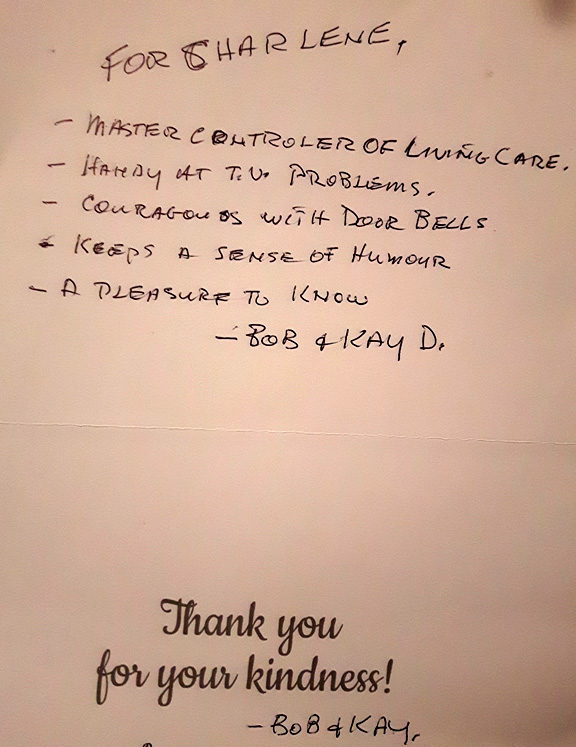 FOR CHARLENE,
- MASTER CONTROLER OF LIVING CARE.
- HANDY AT T.V. PROBLEMS.
- COURAGOUS WITH DOOR BELLS
- KEEPS A SENSE OF HUMOUR
- A PLEASURE TO KNOW
- BOB & KAY D.
Thank you
for your kindness!
- BOB & KAY.